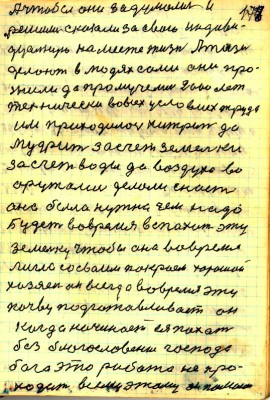 177
А чтобы они задумали и
решили сказали за свою индиви-
дуальную на месте жизнь
делают в людях сами они про-
жили да промучели лет
технически во всех условиях труда
им приходилос хитрит да
мудрит за счет земелки
за счет воды да воздуха во
оружали делали снаст
она была нужна чем надо
будет вовремя вспахат эту
землку чтобы она вовремя
лигла со своим покроем хороший
хозяен он всегда вовремя эту
почву подготавливает он
когда начинает ея пахат
без благословения господа
бога это работа не про-
ходит всему этому он